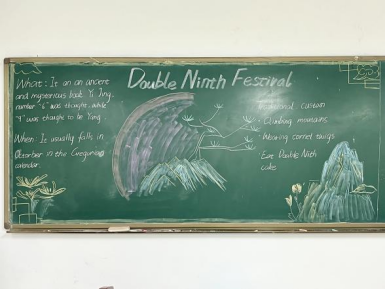 Double Ninth Festival
What: It an an ancient
and mysterious book "Yi Jing.
number "6" was thought while
"9" was thought to be Yang
When: It usually falls in
October in the Gregorian
calendar.
custom
· Climbing mountains
· Wearing cornel twigs
· Eat Double Nith
cake